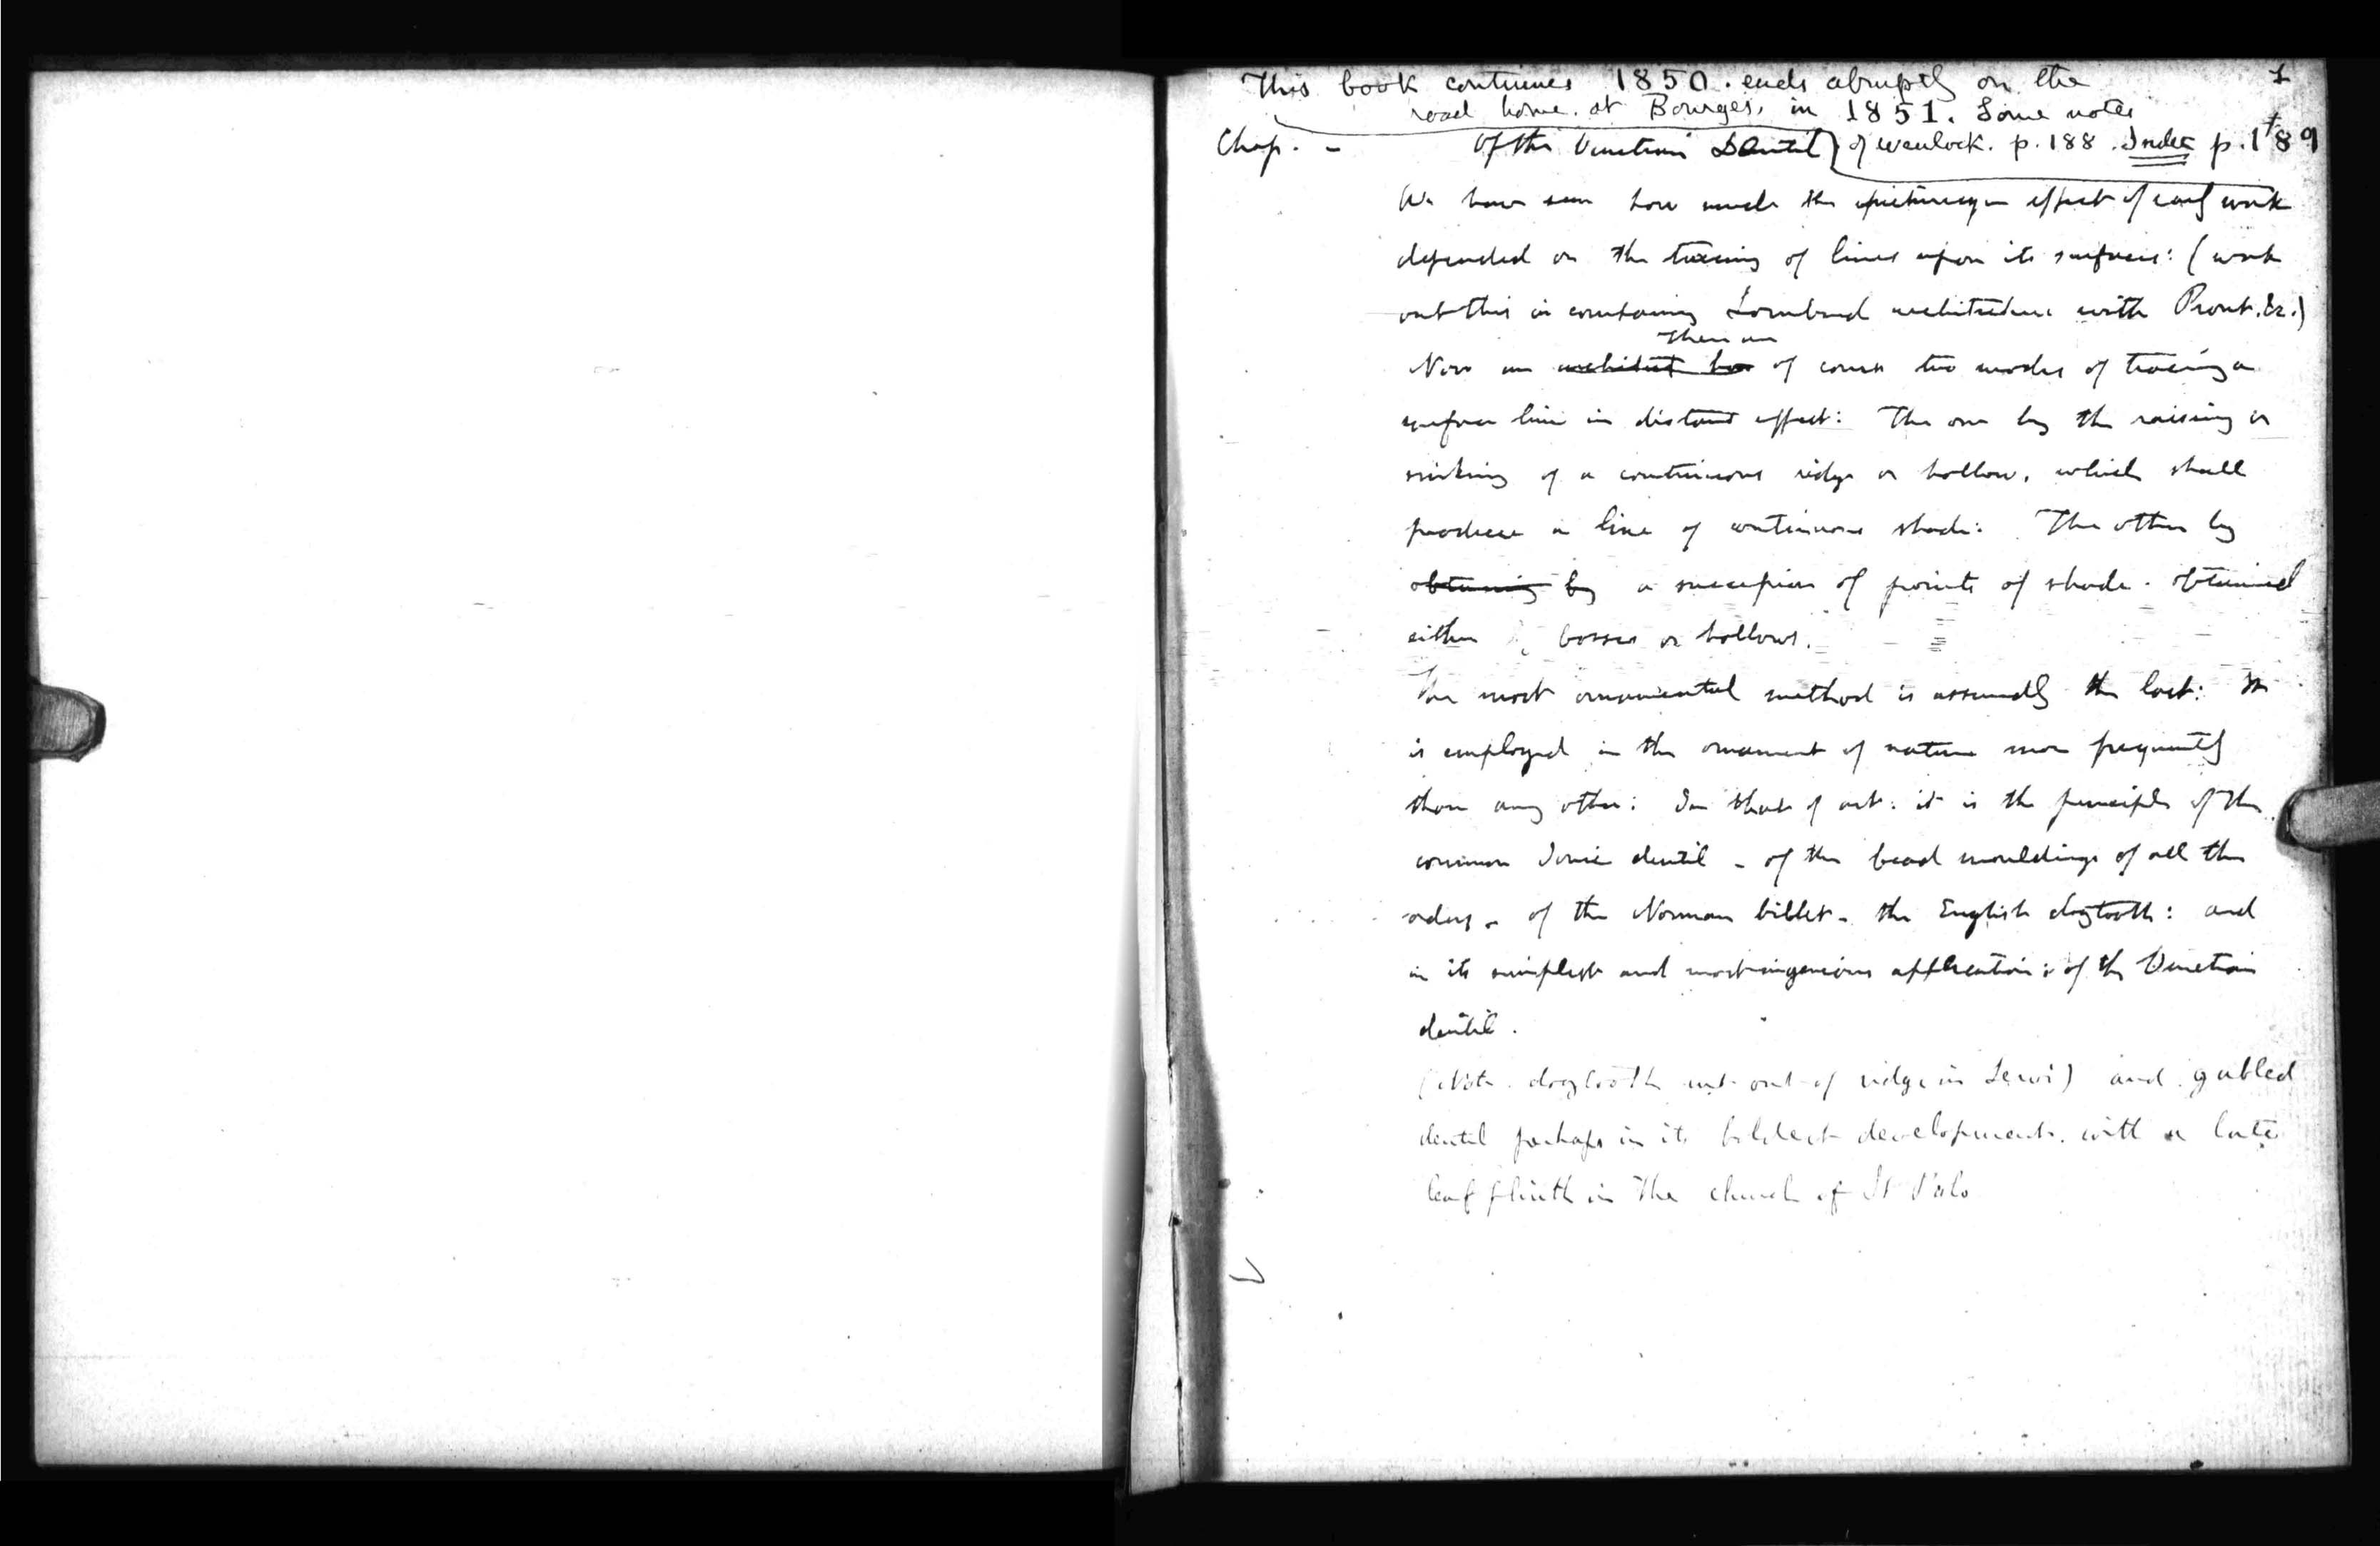 This book continues 1850. ends abruptly on the 1
road home. at Bourges. in 1851. Some notes
Chap. - Of the Venetian Dentil of Wenlock. p. 188. Index p. 189
We have seen how much the picturesque effect of early work
depended on the tracing of lines upon its surfaces: (work
out this in comparing Lombard architecture with Prout. &c.)
There are
Now an architect has of course two modes of tracing a
surface line in distant effect: The one by the raising or
sinking of a continuous ridge or hollow, which shall
produce a line of continuous shade: The other by
obtaining by a succession of points of shade. obtained
either by bosses or hollows.
The most ornamental method is assuredly the last: It
is employed in the ornament of nature more frequently
than any other: In that of art: it is the principle of the
common Ionic dentil - of the bead mouldings of all the
orders - of the Norman billet - the English dogtooth: and
in its simplest and most ingenious application: of the Venetian
dentil.
(Note. dogtooth cut out of ridge in) and gabled
dentil perhaps in its boldest development. with a late
leaf plinth in the church of St Polo